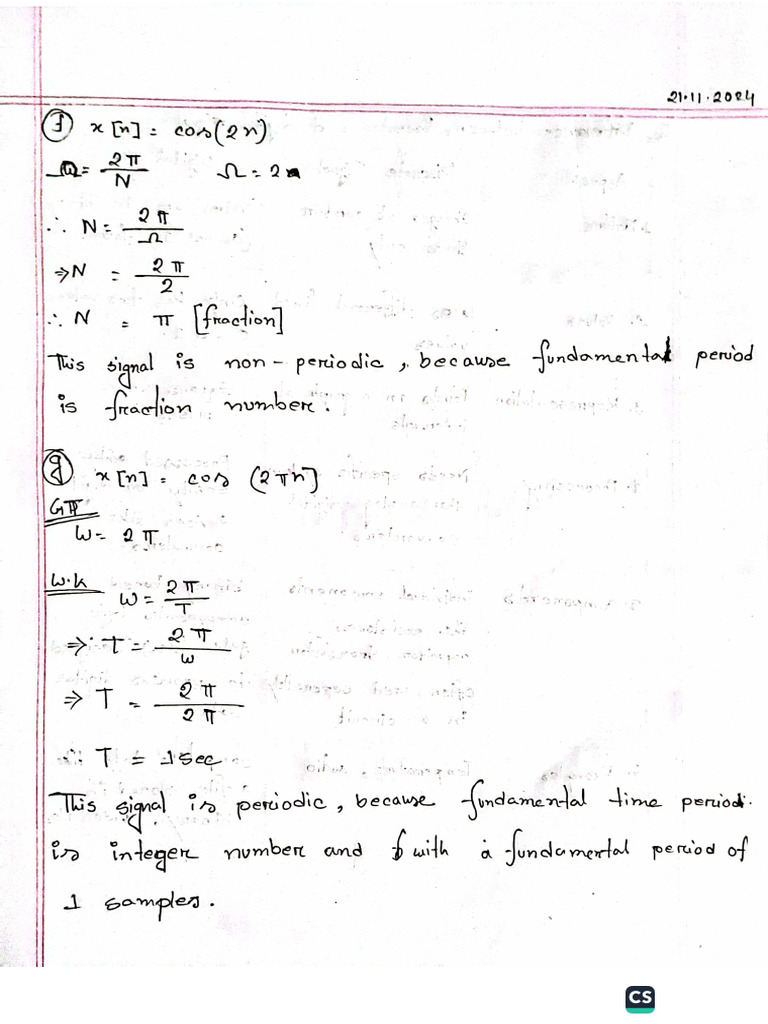 21.11.2024
f x[n] = cos(2n)
Ω = 2π/N Ω = 2
∴ N = 2π/Ω
⇒ N = 2π/2
∴ N = π [fraction]
This signal is non-periodic, because fundamental period
is fraction number.
g x[n] = cos (2πn]
W = 2π
W.k W = 2π/T
⇒ T = 2π/ω
⇒ T = 2π/2π
∴ T = 1 sec
This signal is periodic, because fundamental time period.
is integer number and with a fundamental period of
1 samples.
CS